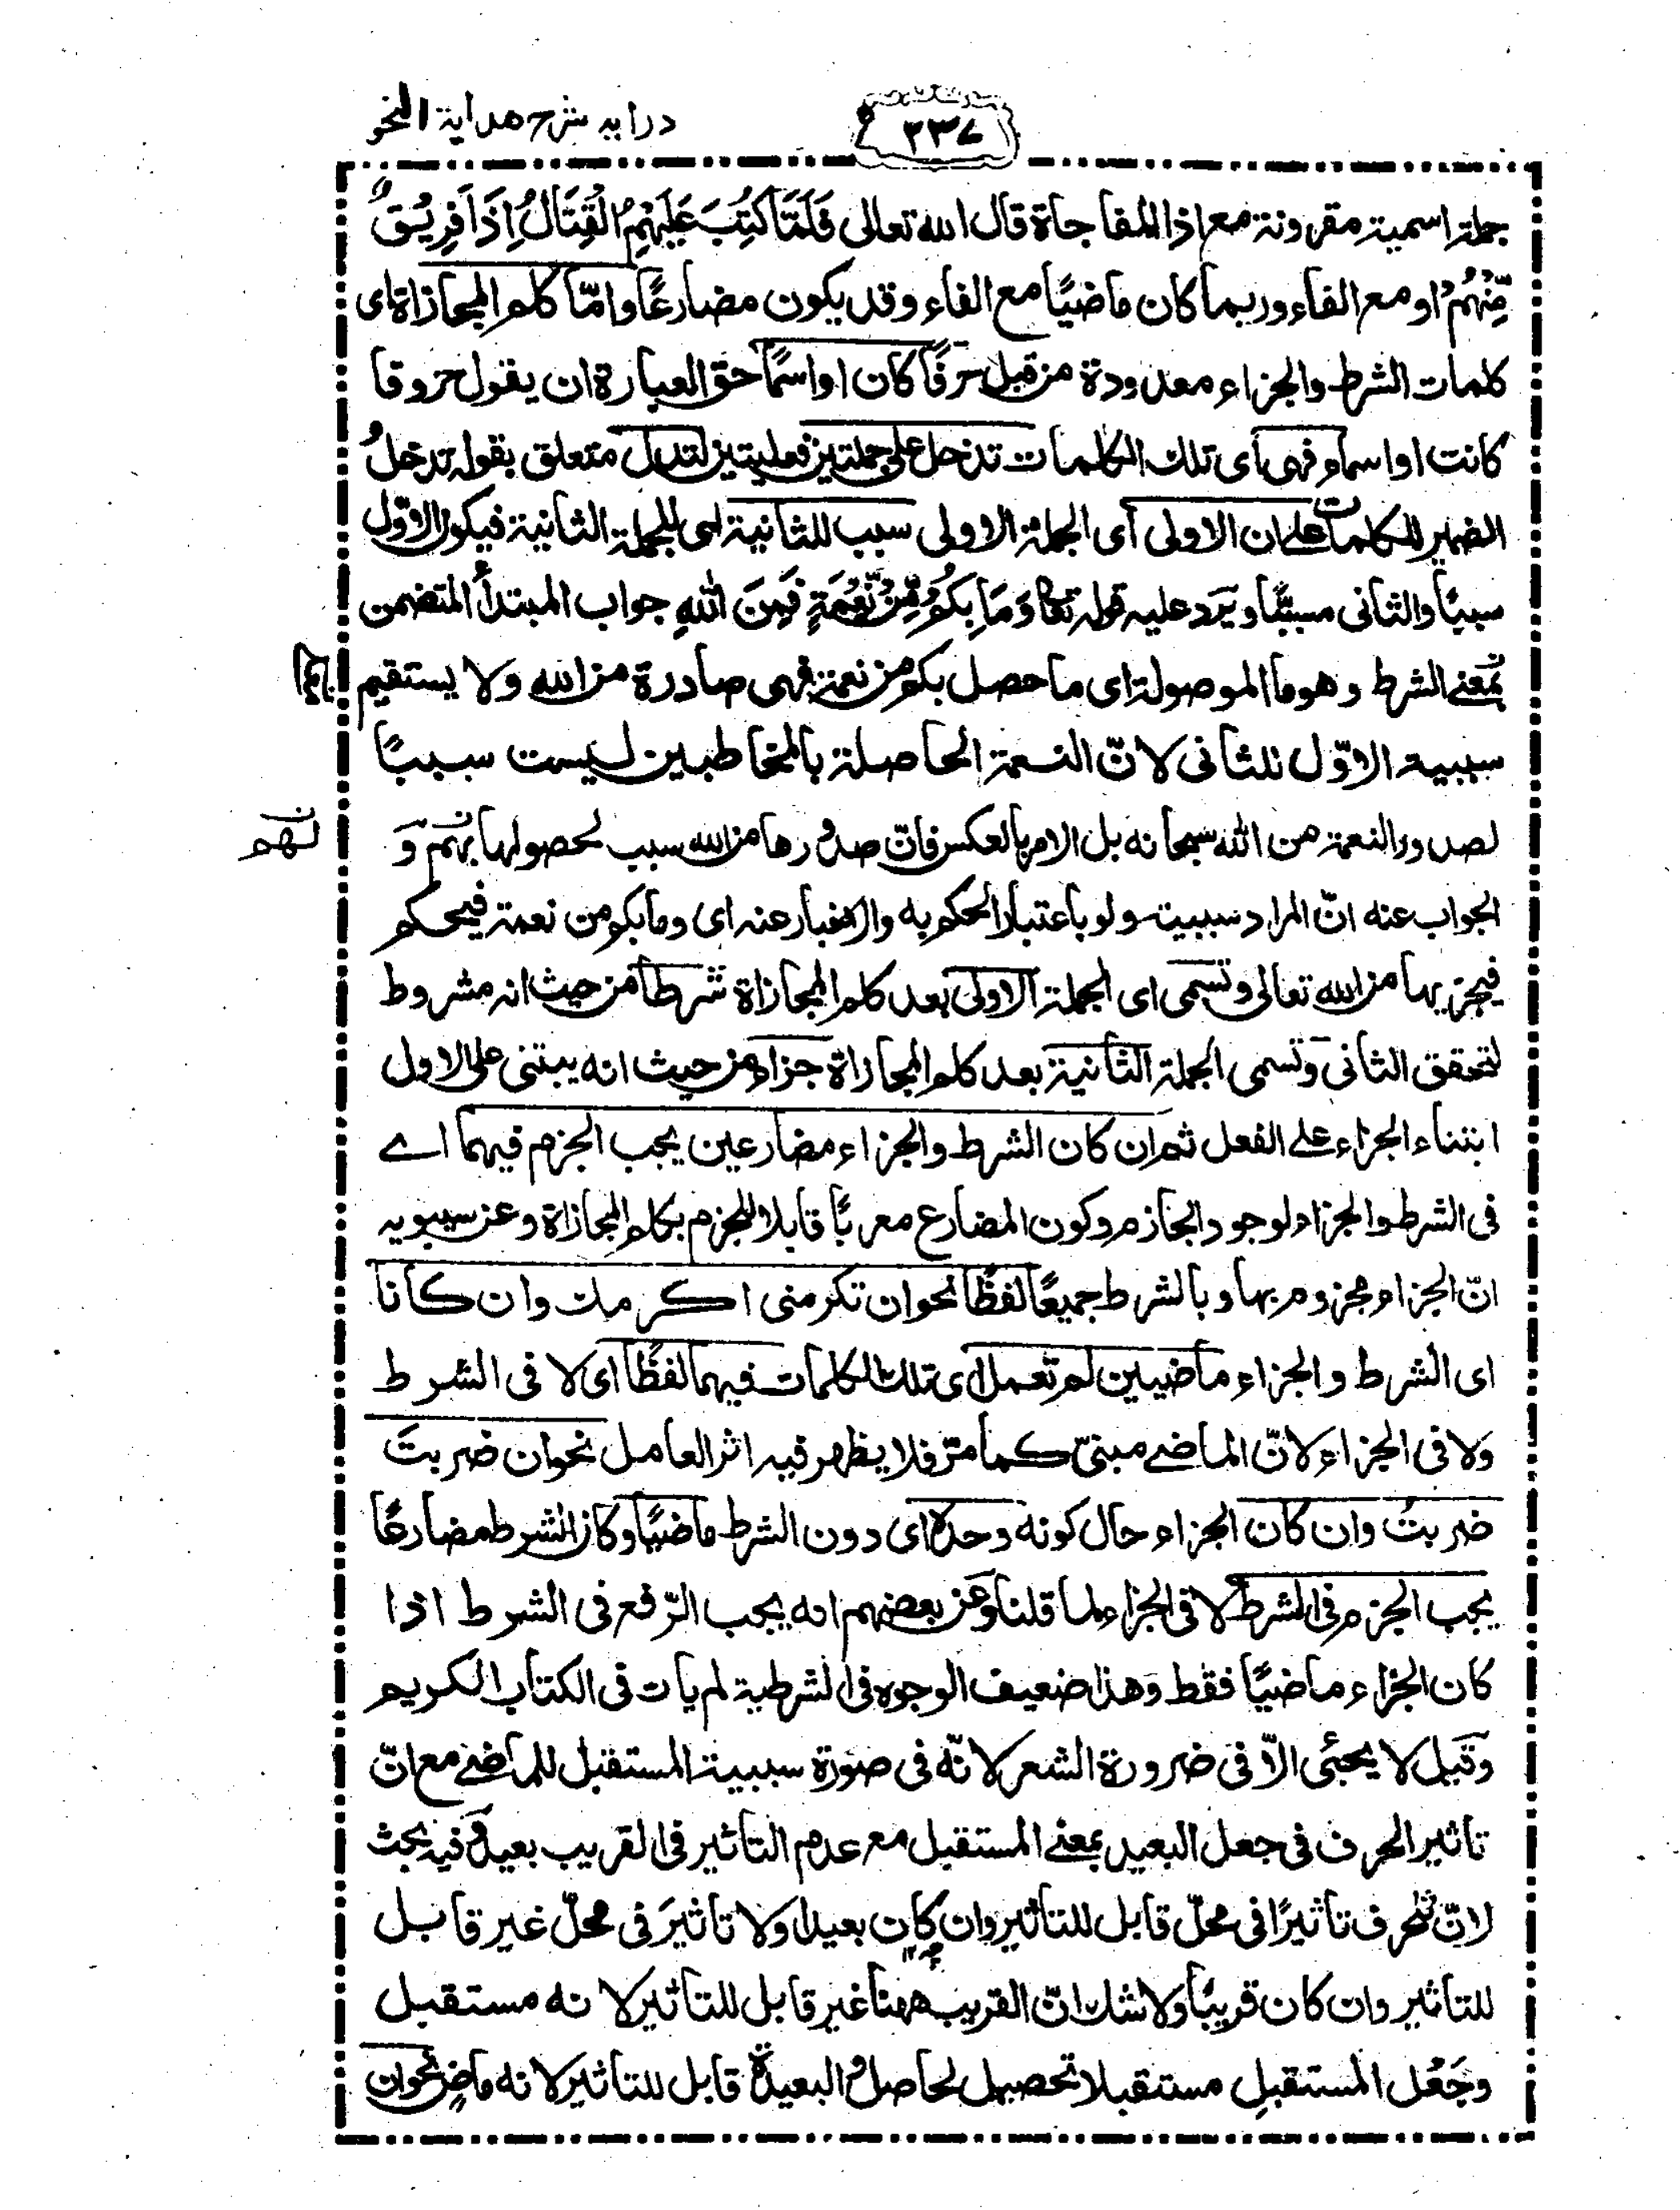 درايه شرح هداية النحو
٢٣٧
جملة اسمية مقرونة مع اذا المفاجاة قال الله تعالى فَلَمَّا كُتِبَ عَلَيْهِمُ الْقِتَالُ اِذَا فَرِيْقٌ
مِّنْهُمْ او مع الفاء وربما كان ماضيًا مع الفاء وقد يكون مضارعًا وامّا كلم المجازاة اى
كلمات الشرط والجزاء معدودة من قبل حرفًا كان او اسمًا حق العبارة ان يقول حروفا
كانت او اسماء فهى اى تلك الكلمات تدخل على جملتين فعليتين لتدل متعلق بقوله تدخلُ
الضمير للكلمات على ان الاولى اى الجملة الاولى سبب للثانية اى للجملة الثانية فيكون الاوّل
سببًا والثانى مسببًا ويرد عليه قوله تعالى وَمَا بِكُمْ مِّنْ نِّعْمَةٍ فَمِنَ اللهِ جواب المبتدأ المتضمن
بمعنى الشرط وهو ما الموصولة اى ما حصل بكم من نعمة فهى صادرة من الله ولا يستقيم
سببية الاوّل للثانى لانّ النعمة الحاصلة بالمخاطبين ليست سببًا
لصدور النعمة من الله سبحانه بل الامر بالعكس فانّ صدورها من الله سبب لحصولها بهم وَ
لهم
الجواب عنه انّ المراد سببيته ولو باعتبار الحكم به والاخبار عنه اى وما بكم من نعمة فيحكم
فيجزيها من الله تعالى وتسمى اى الجملة الاولى بعد كلم المجازاة شرطًا من حيث انه مشروط
لتحقق الثانى وتسمى الجملة الثانية بعد كلم المجازاة جزاء من حيث انه يبتنى على الاول
ابتناء الجزاء على الفعل ثم ان كان الشرط والجزاء مضارعين يجب الجزم فيهما اے
فى الشرط والجزاء لوجود الجازم وكون المضارع معربًا قابلا للجزم بكلم المجازاة وعن سيبويه
انّ الجزاء مجزوم بها وبالشرط جميعًا لفظًا نحو ان تكرمنى اكرمك وان كانا
اى الشرط والجزاء ماضيين لم تعمل اى تلك الكلمات فيهما لفظًا اى لا فى الشرط
ولا فى الجزاء لانّ الماضے مبنىّ كما مرّ فلا يظهر فيه اثر العامل نحو ان ضربتَ
ضربتُ وان كان الجزاء حال كونه وحده اى دون الشرط ماضيًا وكان الشرط مضارعًا
يجب الجزم فى الشرط لا فى الجزاء لما قلنا وعن بعضهم انه يجب الرّفع فى الشرط اذا
كان الجزاء ماضيًا فقط وهذا ضعيف الوجوه فى الشرطية لم يات فى الكتاب الكريم
وقيل لا يجئى الاّ فى ضرورة الشعر لانّه فى صورة سببية المستقبل للماضے مع انّ
تاثير الحرف فى جعل البعيد بمعنے المستقبل مع عدم التاثير فى القريب بعيد وفيه بحث
لانّ للحرف تاثيرًا فى محلّ قابل للتاثير وان كان بعيدا ولا تاثيرَ فى محلّ غير قابل
للتاثير وان كان قريبًا ولا شك انّ القريب ههنا غير قابل للتاثير لانه مستقبل
وجَعْل المستقبلِ مستقبلا تحصيل لحاصل والبعيد قابل للتاثير لانه ماضٍ نحو ان